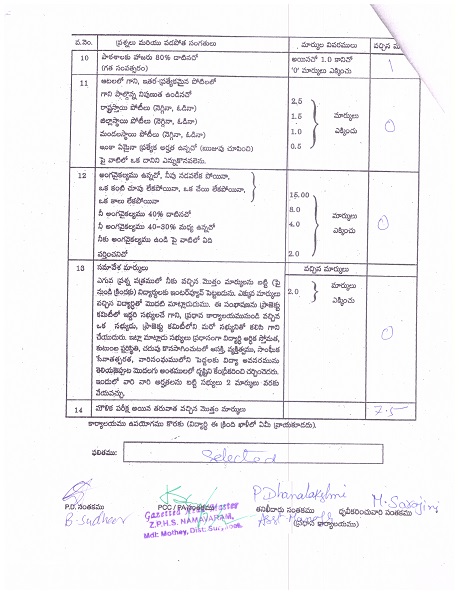 వ.నెం. ప్రశ్నలు మరియు పడపోత సంగతులు మార్కుల వివరములు వచ్చిన మా
10 పాఠశాలకు హాజరు 80% దాటినచో అయినచో 1.0 కానిచో 1
(గత సంవత్సరం) '0' మార్కులు ఎక్కించు
11 ఆటలలో గాని, ఇతర ప్రత్యేకమైన పోటీలలో
గాని పాల్గొన్న నిపుణుత ఉండినచో
రాష్ట్రస్థాయి పోటీలు (నెగ్గినా, ఓడినా) 2.5
జిల్లాస్థాయి పోటీలు (నెగ్గినా, ఓడినా) 1.5 మార్కులు
మండలస్థాయి పోటీలు (నెగ్గినా, ఓడినా) 1.0 ఎక్కించు 0
ఇంకా ఏమైనా ప్రత్యేక అర్హత ఉన్నచో (ఋజువు చూపించి) 0.5
పై వాటిలో ఒక దానిని ఎన్నుకొనవలెను.
12 అంగవైకల్యము ఉన్నచో, నీవు నడవలేక పోయినా,
ఒక కంటి చూపు లేకపోయినా, ఒక చేయి లేకపోయినా, 15.00
ఒక కాలు లేకపోయినా
నీ అంగవైకల్యము 40% దాటినచో 8.0 మార్కులు
నీ అంగవైకల్యము 40-30% మధ్య ఉన్నచో 4.0 ఎక్కించు 0
నీకు అంగవైకల్యము ఉండి పై వాటిలో ఏది
వర్తించనిచో 2.0
13 సమావేశ మార్కులు వచ్చిన మార్కులు
ఎగువ ప్రశ్న పత్రములో నీకు వచ్చిన మొత్తం మార్కులను బట్టి (పై
నుండి క్రిందకు) విద్యార్థులకు ఇంటర్వ్యూకి పెట్టబడును. ఎక్కువ మార్కులు 2.0 మార్కులు
వచ్చిన విద్యార్థితో మొదట మాట్లాడుదుము. ఈ సంభాషణను ప్రాజెక్టు ఎక్కించు
కమిటీలో ఇద్దరి సభ్యులచే గాని, ప్రధాన కార్యాలయమునుండి వచ్చిన
ఒక సభ్యుడు, ప్రాజెక్టు కమిటీలోని మరో సభ్యునితో కలిసి గాని
చేయుదురు. ఇట్లా మాట్లాడు సభ్యులు ప్రధానంగా విద్యార్థి ఆర్థిక స్తోమత, 0
కుటుంబ పరిస్థితి, చదువు కొనసాగించుటలో ఆసక్తి, వ్యక్తిత్వము, సాంఘీక
సేవాతత్పరత, వారిసంఘములోని పెద్దలకు విద్యా అవసరమును
తెలియజెప్పుట మొదలగు అంశములలో దృష్టిని కేంద్రీకరించి చర్చించెదరు.
ఇందులో వారి వారి అర్హతలను బట్టి సభ్యులు 2 మార్కులు వరకు
వేయవచ్చు.
14 మౌళిక పరీక్ష అయిన తరువాత వచ్చిన మొత్తం మార్కులు 7.5
కార్యాలయము ఉపయోగము కొరకు (విద్యార్థి ఈ క్రింది ఖాళీలో ఏమీ వ్రాయకూడదు).
ఫలితము: Selected
P.Dhanalakshmi M. Sarojini
P.D. సంతకము PCC / PA సంతకము తనిఖీదారు సంతకము ధృవీకరించువారి సంతకము
B. Sudheer Gazetted Headmaster (ప్రధాన కార్యాలయము)
Z.P.H.S. NAMAVARAM,
Mdl: Mothey, Dist: Suryapet